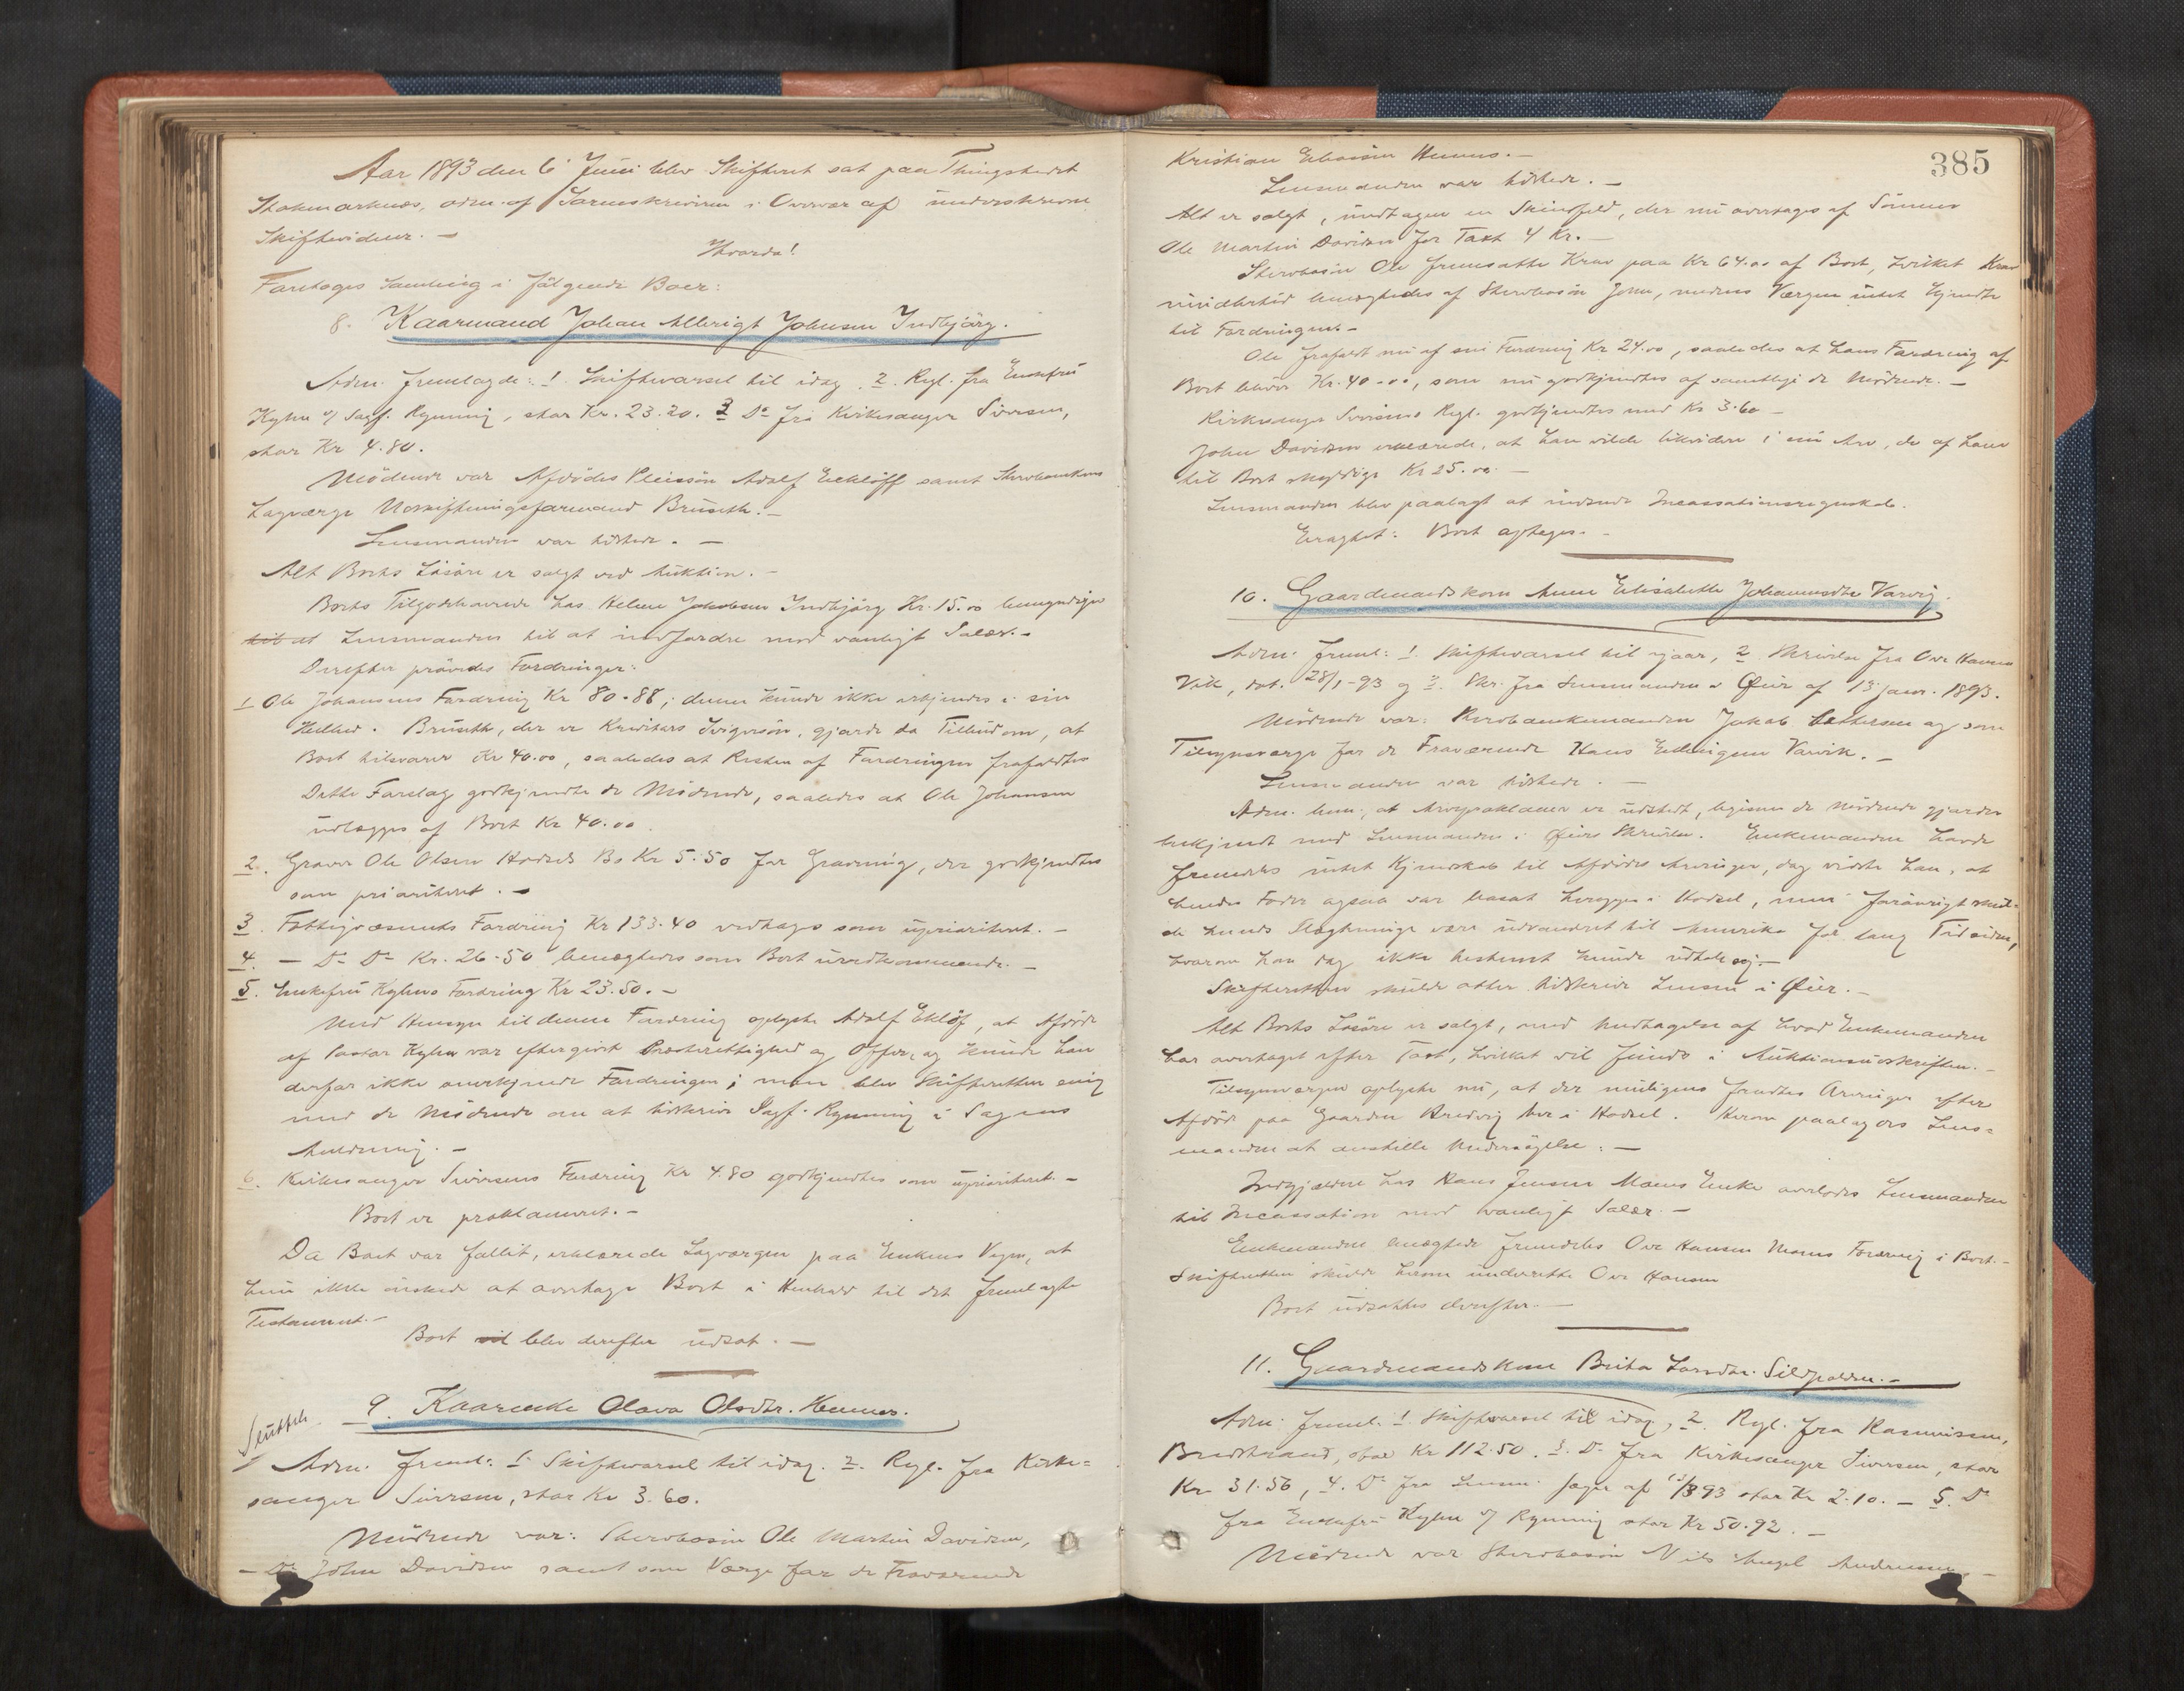 Aar 1893 den 6 Juni blev Skifteret sat paa Thingstedet
Stokmarknæs, adm. af Sorenskriveren i Overvær af underskrevne
Skiftevidner. —
Hvorda!
Foretoges Samling i følgende Boer:
8. Kaarmand Johan Albrigt Johnsen Indbjörg.
Adm. fremlagde: 1. Skiftevarsel til idag. 2. Regl. fra Enkefru
Kyhn v/ Sagf. Rynning, stor Kr. 23.20. 3 Do fra Kirkesanger Sivertsen,
stor Kr 4.80.
Mödende var Afdödes Pleiesön Adolf Eeklöff samt Stervboenkens
Lagværge Udskiftningsformand Bruseth. —
Lensmanden var tilstede. —
Alt Boets Lösöre er solgt ved Auktion. —
Boets Tilgodehavende hos Helene Jakobsen Indbjörg Kr. 15.00 bemyndiges
til at Lensmanden til at indfordre mod vanligt Salær. —
Derefter prövedes Fordringer:
1 Ole Johansens Fordring Kr 80.88; denne kunde ikke erkjendes i sin
Helhed. Bruseth, der er Kreditors Svigersön, gjorde da Tilbud om, at
Boet tilsvarer Kr 40.00, saaledes at Resten af Fordringen frafaldtes
Dette Forslag godkjendte de Mödende, saaledes at Ole Johansen
udlægges af Boet Kr 40.00.
2. Graver Ole Olsen Hadsels Bo Kr 5.50 for Gravning, der godkjendtes
som prioriteret. —
3. Fattigvæsenets Fordring Kr 133.40 vedtages som uprioriteret. —
4. — Do Do Kr. 26.50 benægtedes som Boet uvedkommende. —
5. Enkefru Kyhns Fordring Kr 23.50. —
Med Hensyn til denne Fordring oplyste Adolf Eklöf, at Afdöde
af Pastor Kyhn var eftergivet Presterettighed og Offer, og kunde han
derfor ikke anerkjende Fordringen; men blev Skifteretten enig
med de Mödende om at tilskrive Sagf. Rynning i Sagens
Anledning. —
6. Kirkesanger Sivertsens Fordring Kr 4.80 godkjendtes som uprioriteret. —
Boet er proklameret. —
Da Boet var fallit, erklærede Lagværgen paa Enkens Vegne, at
hun ikke önsked at overtage Boet i Henhold til det fremlagte
Testament. —
Boet vil blev derefter udsat. —
Sluttet.
9. Kaarenke Olava Olsdtr. Hennes.
Adm. freml: 1. Skiftevarsel til idag. 2. Regl. fra Kirke=
sanger Sivertsen, stor Kr 3.60.
Mödende var: Stervbosön Ole Martin Davidsen,
— Do John Davidsen samt som Værge for de Fraværende
385
Kristian Hennes. —
Lensmanden var tilstede. —
Alt er solgt, undtagen en Skindfeld, der nu overtages af Sönnen
Ole Martin Davidsen for Taxt 4 Kr. —
Stervbosön Ole fremsatte Krav paa Kr 64.00 af Boet, hvilket Krav
imidlertid benægtedes af Stervbosön John, medens Værgen intet kjendte
til Fordringen. —
Ole frafaldt nu af sin Fordring Kr 24.00, saaledes at hans Fordring af
Boet bliver Kr. 40.00, som nu godkjendtes af samtlige de Mödende. —
Kirkesanger Sivertsens Regl. godkjendtes med Kr 3.60 —
John Davidsen erklærede, at han vilde likvidere i sin Arv, de af ham
til Boet skyldige Kr 25.00. —
Lensmanden blev paalagt at indsende Incassationsregnskab.
Eragtet: Boet optages. —
10. Gaardmandskone Anne Elisabeth Johannesdtr Varvig.
Adm. freml: 1. Skiftevarsel til igaar, 2 Skrivelse fra Ove Hansen
Vik, dat. 28/1-93 og 3. Skr. fra Lensmanden i Öier af 13 janr. 1893.
Mödende var: Enkemanden Jakob og som
Tilsynsværge for de Fraværende Hans Edvingsen Varvik. —
Lensmanden var tilstede. —
Adm. bem., at Arveproklama er udstedt, ligesom de Mödende gjordes
bekjendt med Lensmandens i Öiers Skrivelse. Enkemanden havde
fremdeles intet Kjendskab til Afdödes Arvinger, dog vidste han, at
hendes Fader ogsaa var bosat heroppe i Hadsel, men forövrigt skul=
de hendes Slægtninge være udvandret til Amerika for lang Tid siden,
hvorom han dog ikke bestemt kunde udtale sig. —
Skifteretten skulde atter tilskrive Lensm i Öier. —
Alt Boets Lösöre er solgt, med Undtagelse af hvad Enkemanden
har overtaget efter Taxt, hvilket vil findes i Auktionsudskriften. —
Tilsynsværgen oplyste nu, at der muligens fandtes Arvinger efter
Afdöde paa Gaarden her i Hadsel. Herom paalagdes Lens=
manden at anstille Undersögelse. —
Indgjælden hos Hans Jensen Moens Enke overlodes Lensmanden
til Incassation mod vanligt Salær. —
Enkemanden benægtede fremdeles Ove Hansen Moens Fordring i Boet. —
Skifteretten skulde herom underrette Ove Hansen
Boet udsattes derefter. —
11. Gaardmandskone Berta Larsdtr. Sildpollen. —
Adm. freml. 1. Skiftevarsel til idag, 2. Regl. fra Rasmussen,
Bredstrand, stor Kr 112.50. 3. Do fra Kirkesanger Sivertsen, stor
Kr 31.56, 4. Do fra Lensm. af 15/3 93 stor Kr 2.10. — 5. Do
fra Enkefru Kyhn v/ Rynning stor Kr 50.92. —
Mödende var Stervbosön Nils Angel Andreassen, —